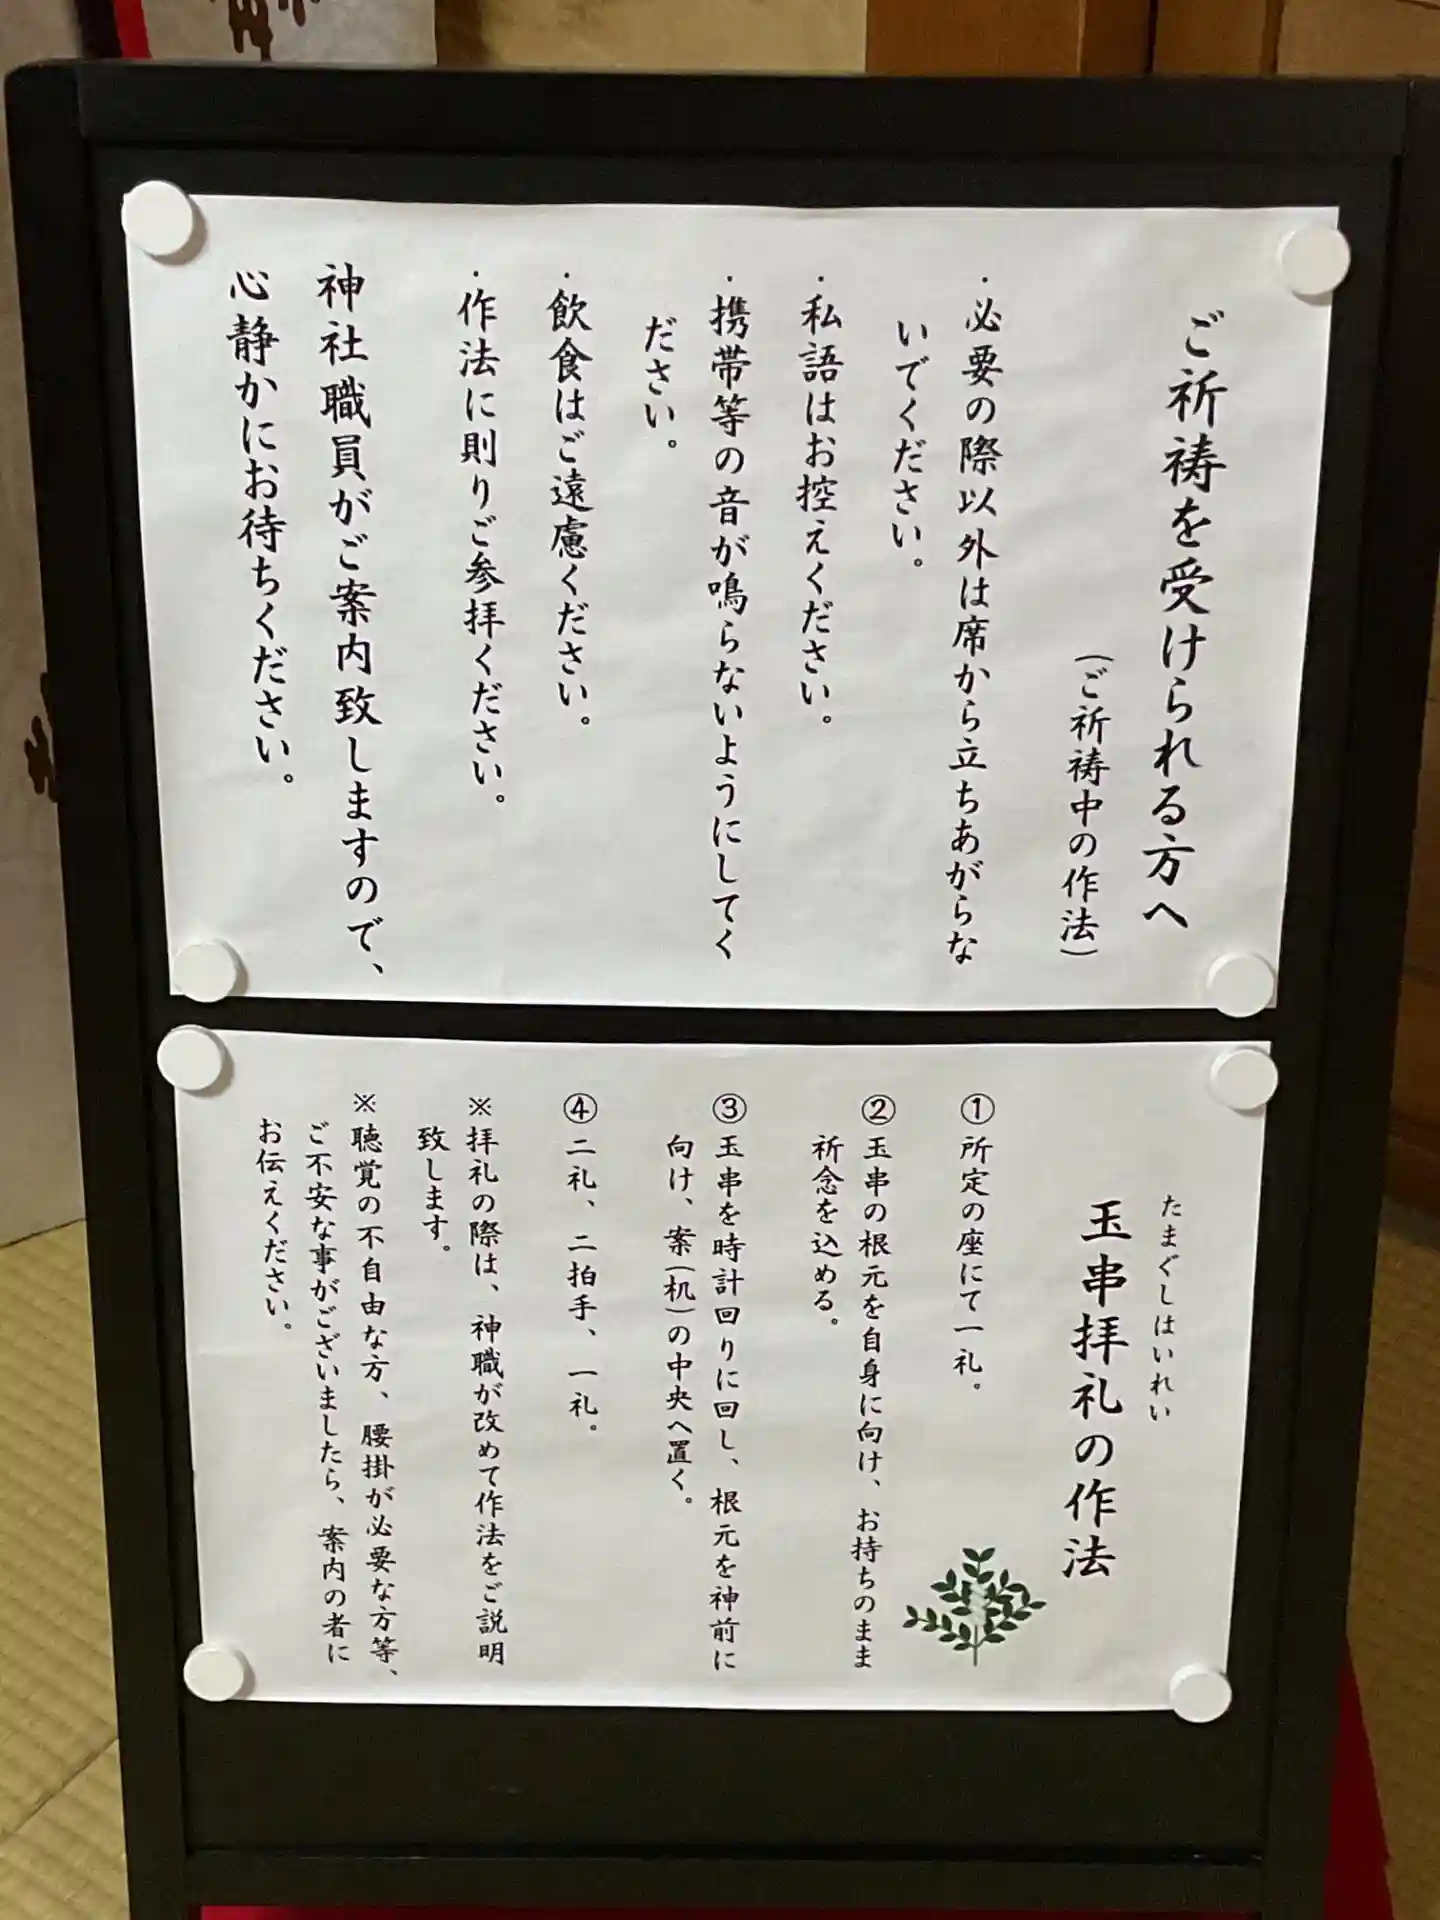 ご祈祷を受けられる方へ
（ご祈祷中の作法）
・必要の際以外は席から立ちあがらな
いでください。
・私語はお控えください。
・携帯等の音が鳴らないようにしてく
ださい。
・飲食はご遠慮ください。
・作法に則りご参拝ください。
神社職員がご案内致しますので、
心静かにお待ちください。
たまぐしはいれい
玉串拝礼の作法
①所定の座にて一礼。
②玉串の根元を自身に向け、お持ちのまま
祈念を込める。
③玉串を時計回りに回し、根元を神前に
向け、案（机）の中央へ置く。
④二礼、二拍手、一礼。
※拝礼の際は、神職が改めて作法をご説明
致します。
※聴覚の不自由な方、腰掛が必要な方等、
ご不安な事がございましたら、案内の者に
お伝えください。